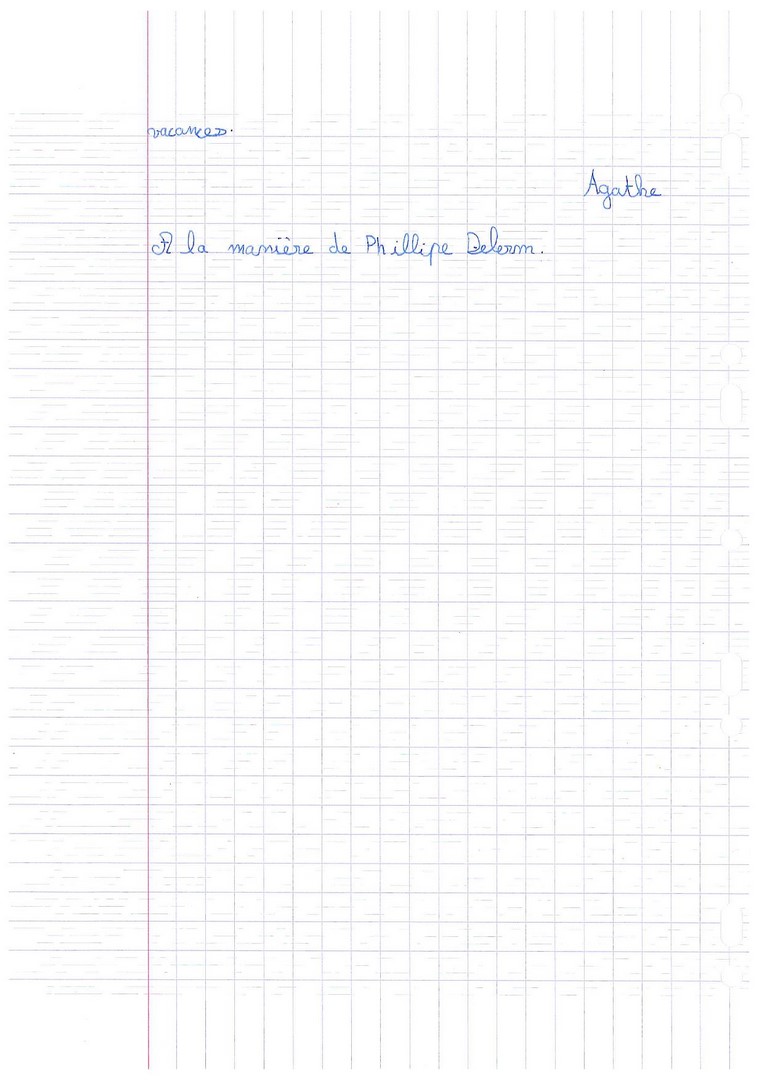 vacances.
Agathe
A la manière de Phillipe Delerm.